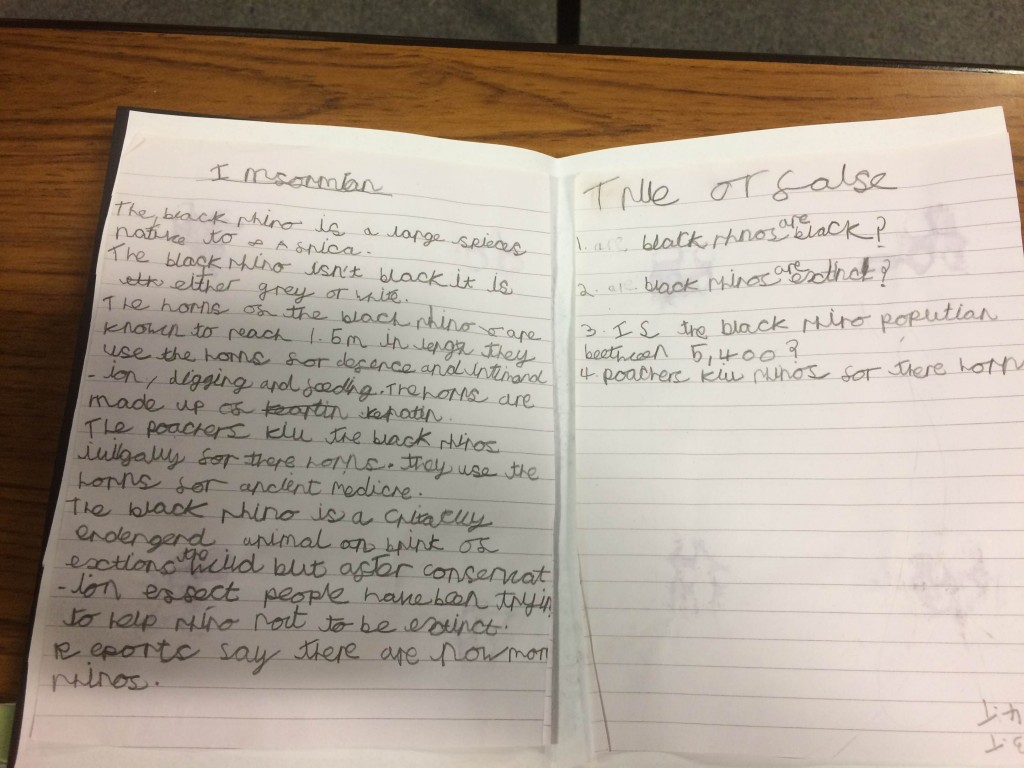 Imformtan
The black rhino is a large spices
native to a Africa.
The black rhino isn't black it is
eth either grey or wite.
The horns of the black rhino are
known to reach 1.5m in lengh they
use the horns for defence and intimand
-ion, digging and feeding. The horns are
made up of keartin keratin.
The poachers kill the black rhinos
illigally for there horns. they use the
horns for ancient medicne.
The black rhino is a critaclly
endengerd animal on brink of
exctions the wild but after conservat
-ion effect people have been tryin
to help rhino not to be extinct.
Reports say there are now mor
rhinos.
True or false
1. are black rhinos are black?
2. are black rhinos are extinct?
3. Is the black rhino poplution
beethween 5,400?
4. poachers kill rhinos for there horn
4.T
3.T